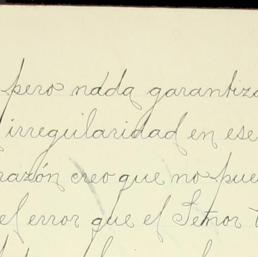 pero nada garantiza
irregularidad en ese
razón creo que no pue
el error que el Señor